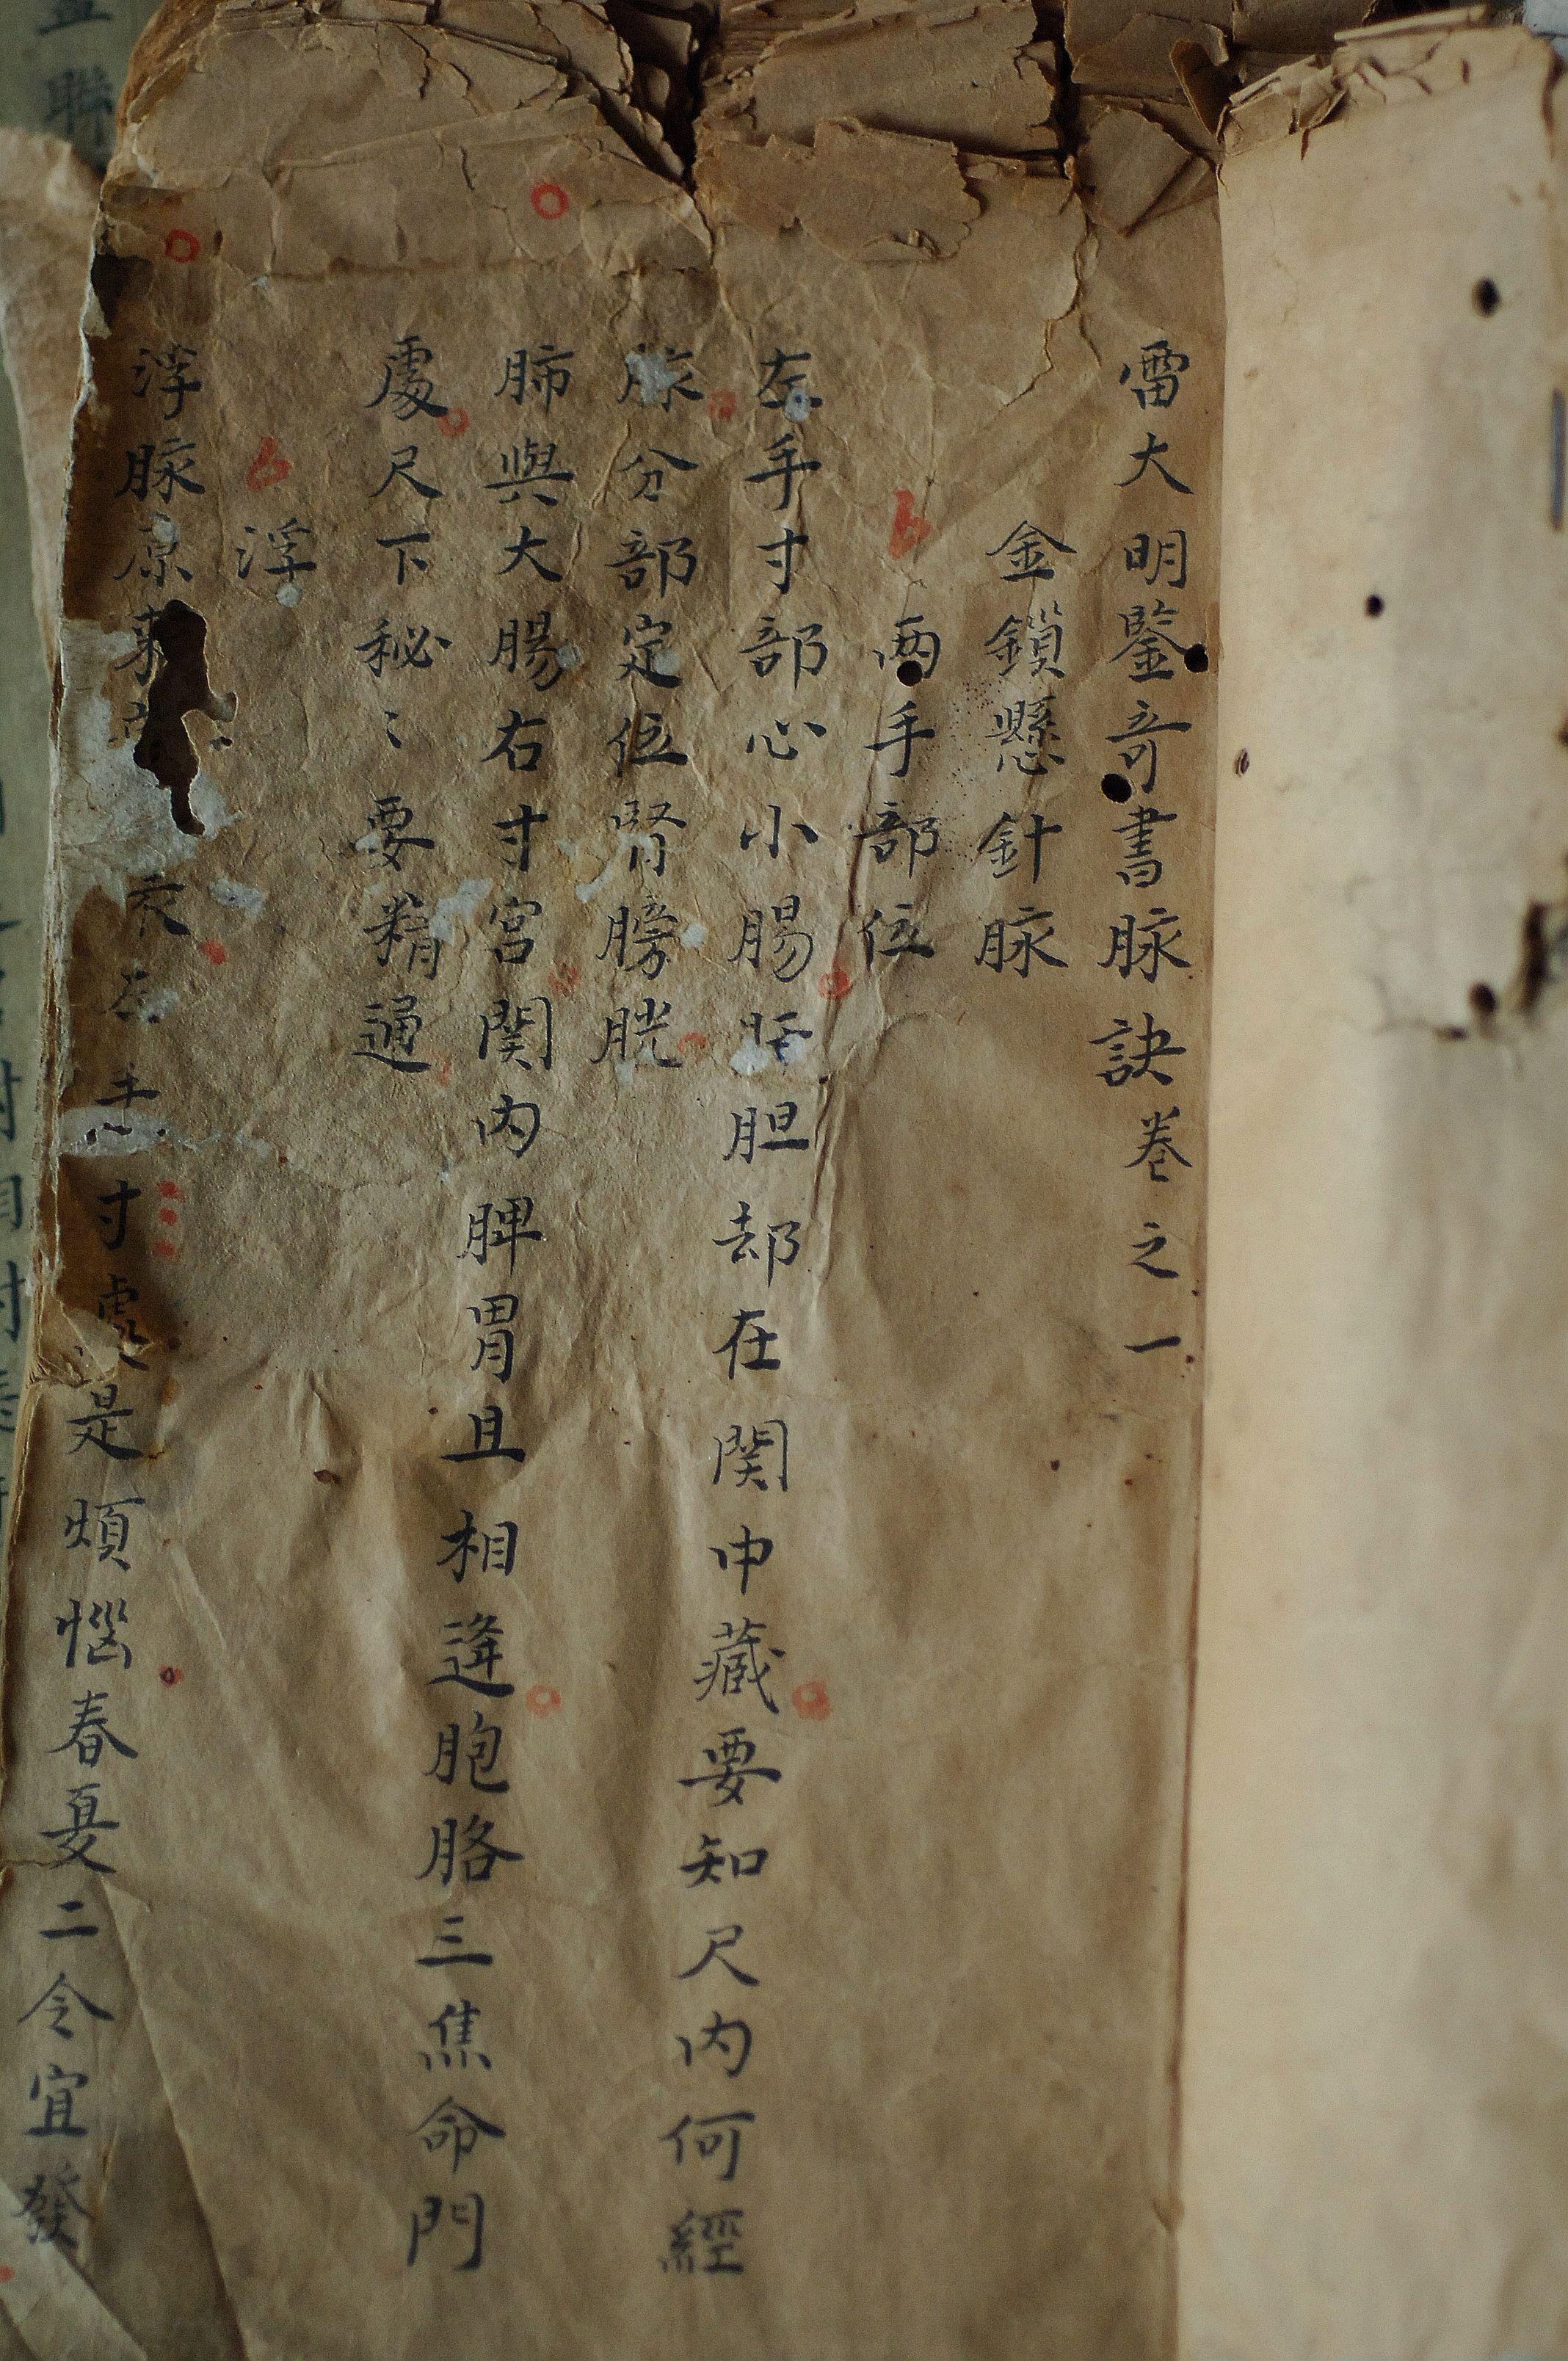 雷大明鑒奇書脉訣卷之一
金鎖懸針脉
两手部位
左手寸部心小腸肝胆却在関中藏要知尺内何經
脉分部定位腎膀胱
肺與大腸右寸宮関内脾胃且相逢胞胳三焦命門
處尺下秘〻要精通
浮
浮脉原来衣左手寸處是煩惱春夏二令宜發